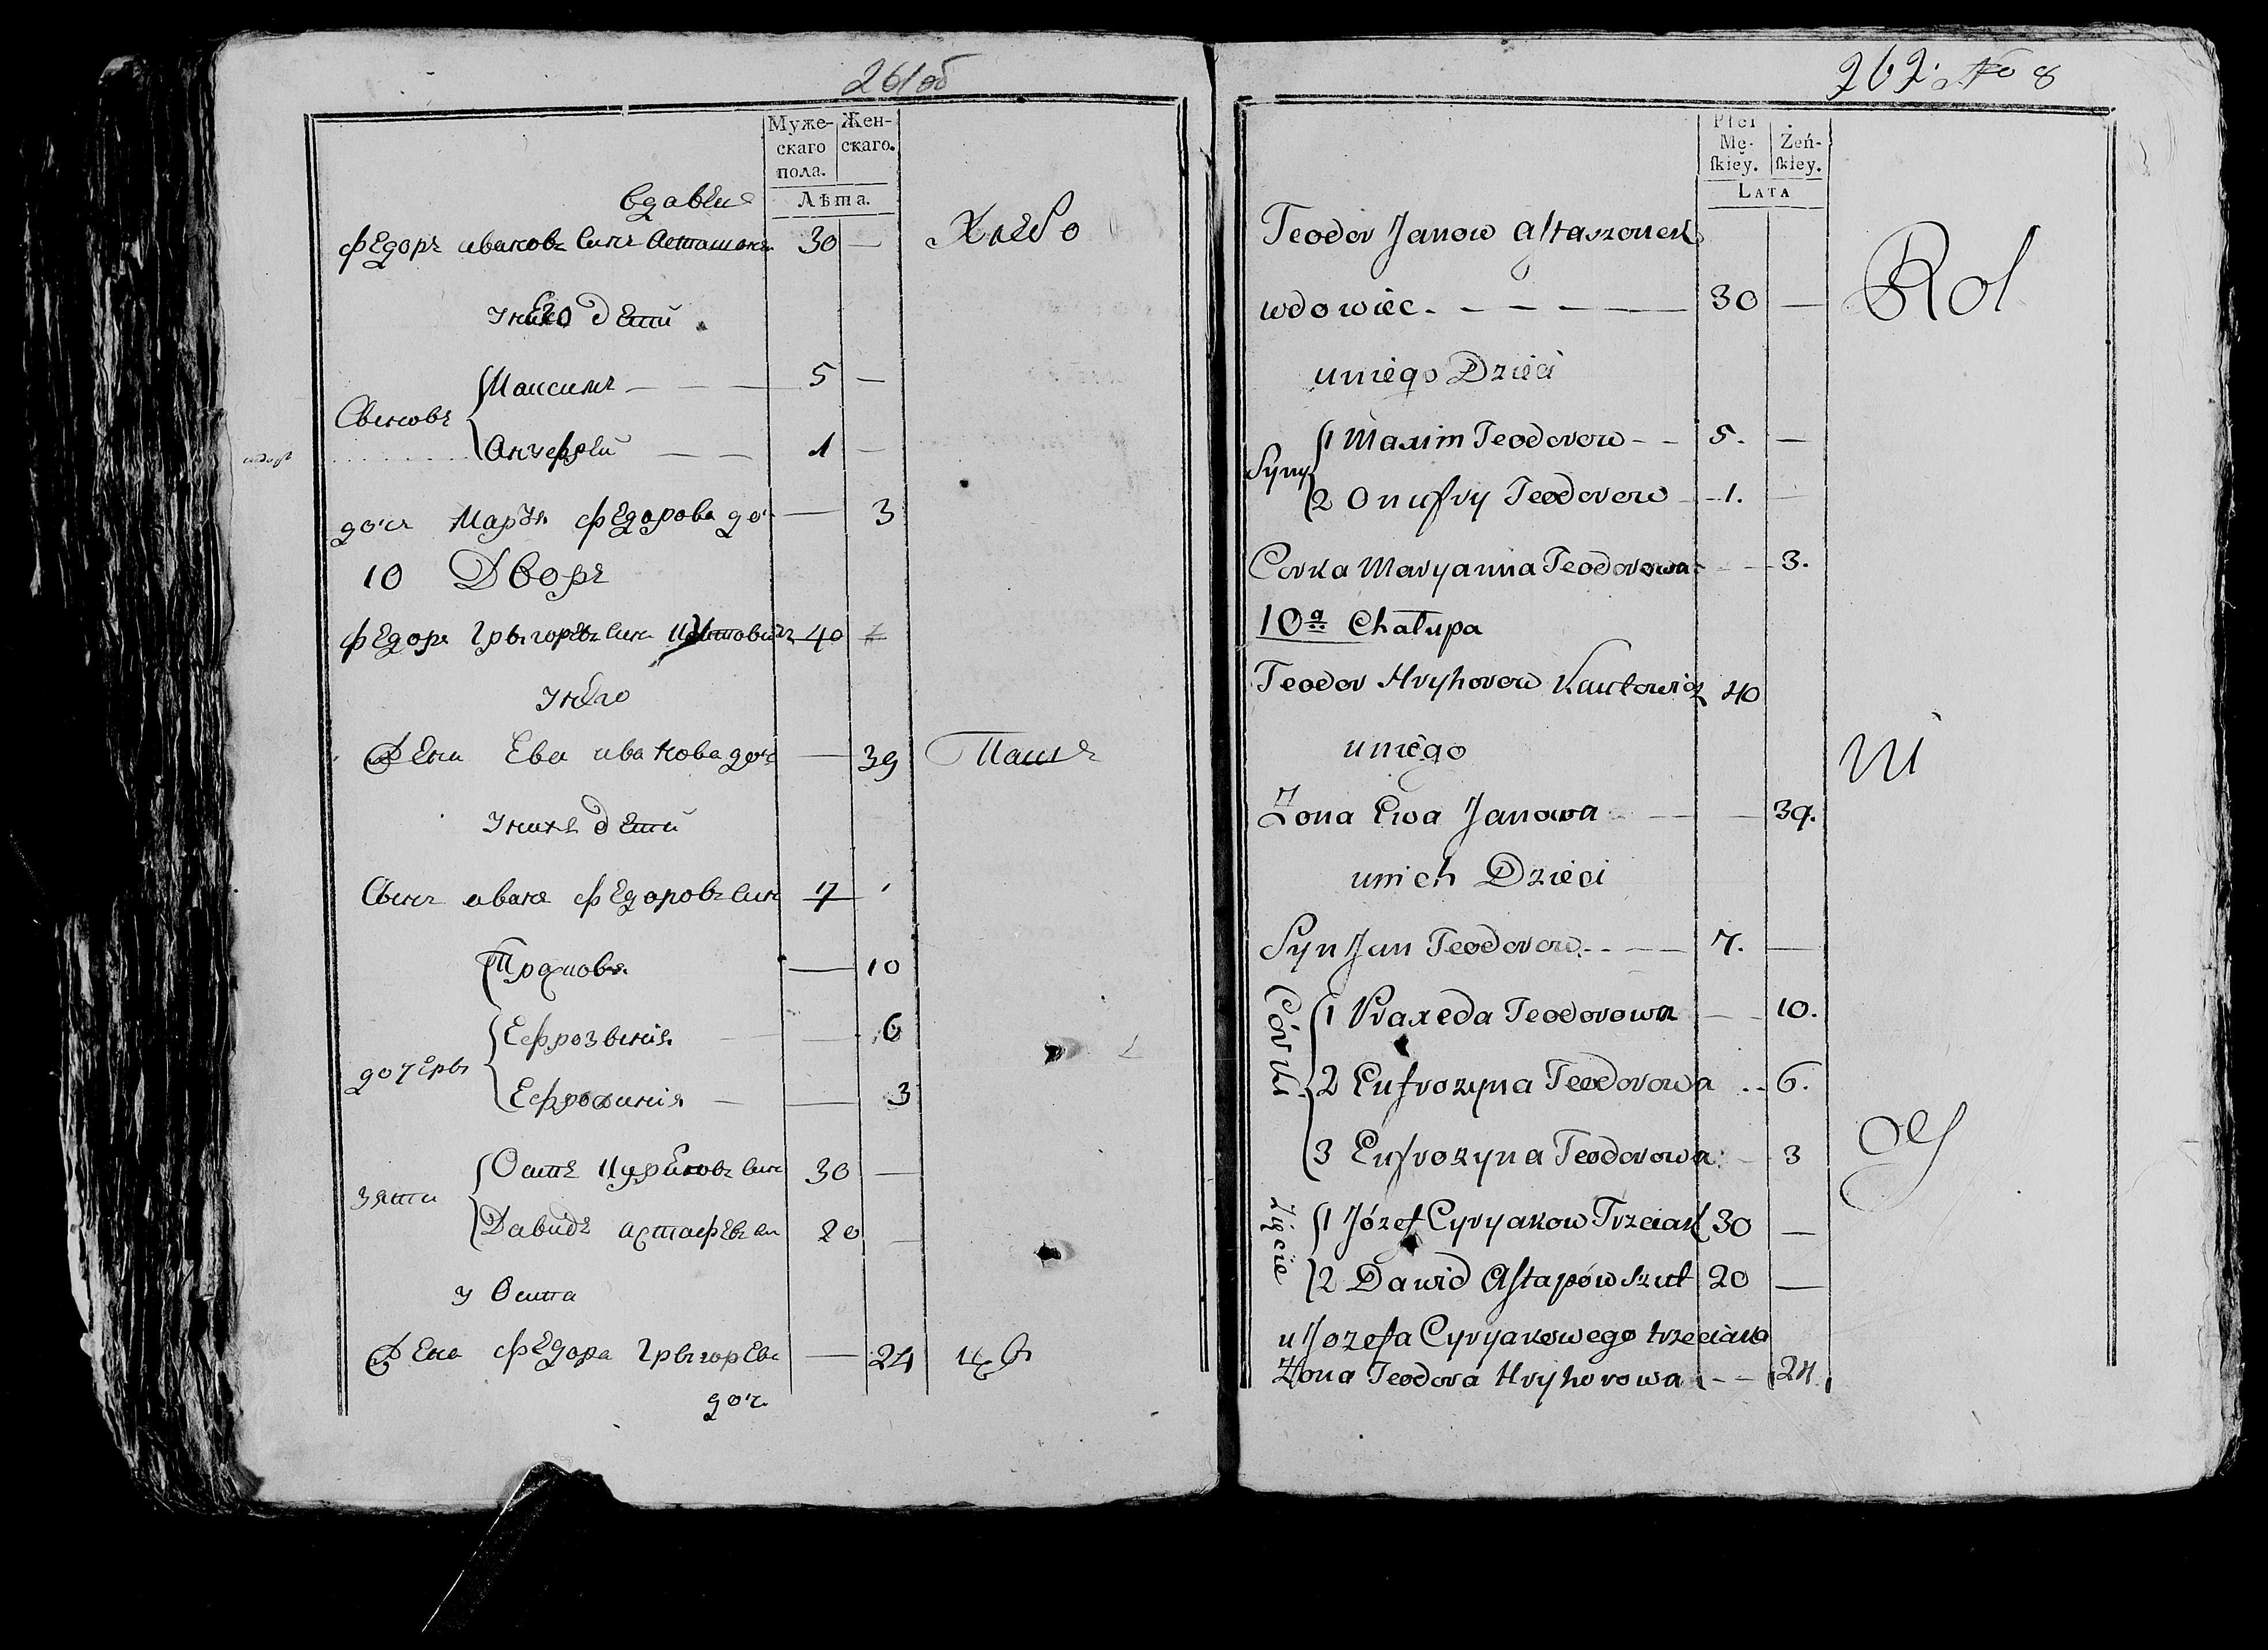 261об
Муже-
скаго
пола.
Жен-
скаго.
Лѣта.
вдавец
Федоръ ивановъ синъ Асташонк 30 — Хлебо
унего дети
Сыновъ
Максимъ — — — 5 —
Ануфрей — — 1 —
доч Маря Федорова доч — 3
10 Дворъ
Федоръ Грыгоревъ синъ 40
унего
Жена Ева иванова доч — 39 Паш
униx дети
Сынъ иванъ Федоровъ син 7
дочеры
Праховя — 10
Ефрозыния — 6
Ефросиния — 3
зяти
Осипъ Цуриковъ син 30 —
Давидъ астафевъ син 20 —
у Осипа
Жена Федора Грыгорева — 24 цы
доч.
262. No 8
Płci
Mę-
ſkiéy.
Żeń-
ſkiey.
LATA
Teodor Janow Astaszonek
wdowiec. — — — — 30 — Rol
uniego Dzieci
Syny
1 Maxim Teodorow — — 5. —
2 Onufry Teodorow — 1. —
Corka Maryanna Teodorowa — 3.
10a Chałupa
Teodor Hryhorow Kautowicz 40
uniego ni
Żona Ewa Janowa — — 39.
unich Dzieci
Syn Jan Teodorow — — 7. —
Córki
1 Praxeda Teodorowa — — 10.
2 Eufrozyna Teodorowa 6.
3 Eufrozyna Teodorowa — 3 cy
Zięcie
1 Józef Cyryakow Trzeciak 30 —
2 Dawid Astapów Szut 20 —
u Jozefa Cyryakowego trzeciaka
Żona Teodora Hryhorowa — — 24.